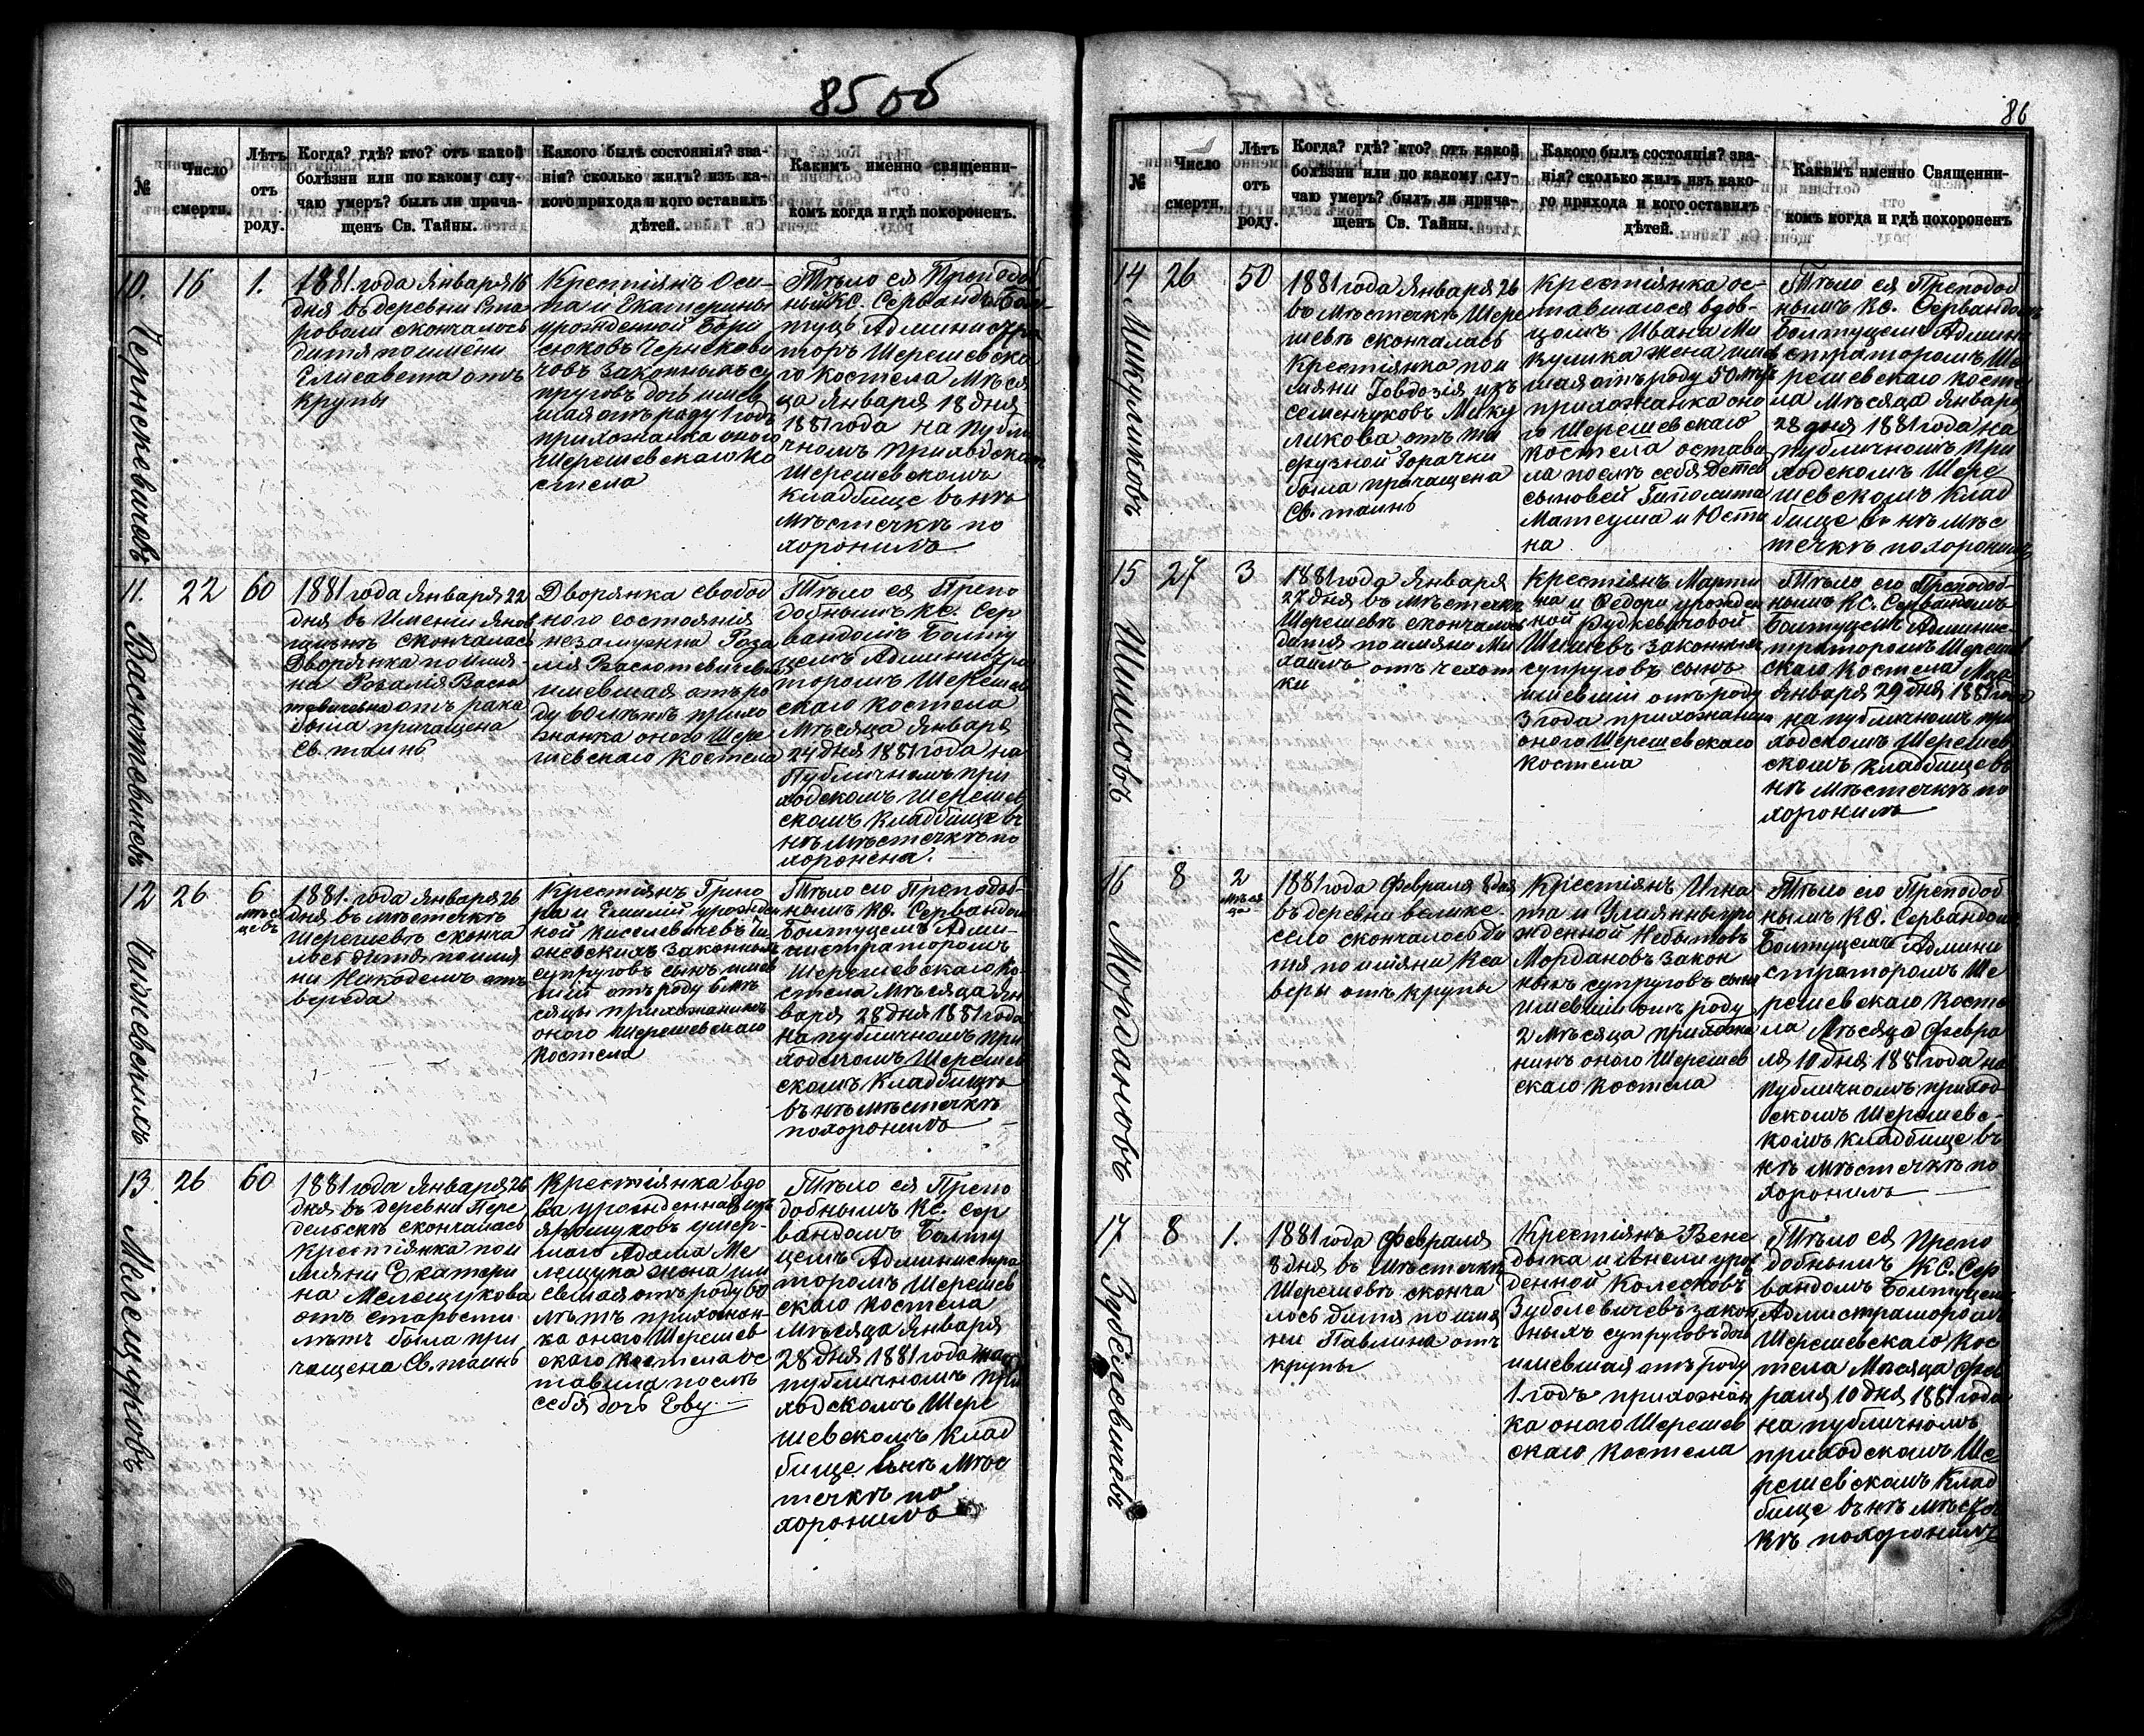 85 об
№
Число
смерти.
Лѣтъ
отъ
роду.
Когда? гдѣ? кто? отъ какой
болѣзни или по какому слу-
чаю умеръ? былъ ли прича-
щенъ Св. Тайны.
Какого былъ состоянія? зва-
нія? сколько жилъ? изъ ка-
кого прихода и кого оставилъ
дѣтей.
Какимъ именно священни-
комъ когда и гдѣ похороненъ.
10.
16
1.
1881. года Января 16
дня въ деревни Ста
скончалось
дитя по имени
Елисавета отъ
крупы
Крестіянъ Оси-
па и Екатерины
урожденной
законныхъ су
пруговъ дочь имев
шая отъ роду 1 годъ
прихожанка оного
Шерешевскаго Ко
стела
Тѣло ея Преподоб
нымъ КС. Сервандъ
Администра
торъ Шерешевска
го костела Мѣся
ца Января 18 дня
1881 года на Публи
чномъ приходском
Шерешевскомъ
кладбище въ нѣ
мѣстечкѣ по
хоронилъ
11.
Васютовичевъ
22
60
1881 года Января 22
дня въ Имении
скончалася
Дворянка по имя-
на Розалія Васю
отъ рака
была причащена
Св. таинъ
Дворянка свобод
ного состоянія
незамужня Роза
лия
имевшая отъ ро
ду 60 лѣтъ прихо
жанка оного Шере
шевскаго Костела
Тѣло ея Препо
добнымъ КС. Сер
вандомъ Болту
цемъ Администра
торомъ Шерешев
скаго Костела
Мѣсяца Января
24 дня 1881 года на
Публичномъ при
ходскомъ Шерешев
скомъ Кладбище в
нѣ мѣстечкѣ по
хоронена.
12
26
6
мѣся
цевъ
1881. года Января 26
дня въ мѣстечкѣ
Шерешевѣ сконча
лось дитя по имя
ни Никодемъ отъ
вереда
Крестіянъ Григо
ра и Емилій урожден
ной
законныхъ
супруговъ сынъ имев
шій отъ роду 6 мѣ
сяцы прихожанинъ
оного Шерешевскаго
Костела
Тѣло его Преподоб-
нымъ КС. Сервандом
Болтуцемъ Адми-
нистраторомъ
Шерешевскаго Ко-
стела Мѣсяца Ян
варя 28 дня 1881 года
на публичномъ при
ходскомъ Шерешев
скомъ Кладбищѣ
въ нѣ мѣстечкѣ
похоронилъ
13
Мелещуковъ
26
60
1881 года Января 26
дня въ деревни Пере
дельскѣ скончалась
Крестіянка по и
мяни Екатери
на Мелещукова
отъ старости
лѣтъ была при
чащена Св. таинъ
Крестіянка вдо
ва урожденная изъ
умер-
шаго Адама Ме
лещука жена им
евшая отъ роду 60
лѣтъ прихожан-
ка оного Шерешев
скаго Костела ос
тавила послѣ
себя дочь Еву
Тѣло ея Препо
добнымъ КС. Сер
вандомъ Болту
цемъ Администра
торомъ Шерешев
скаго Костела
Мѣсяца Января
28 дня 1881 года на
публичномъ при
ходскомъ Шере
шевскомъ Клад
бище внѣ Мѣс
течкѣ по
хоронилъ
86
№
Число
смерти.
Лѣтъ
отъ
роду.
Когда? гдѣ? кто? отъ какой
болѣзни или по какому слу-
чаю умеръ? былъ ли прича-
щенъ Св. Тайны.
Какого былъ состоянія? зва-
нія? сколько жилъ изъ како-
го прихода и кого оставилъ
дѣтей.
Какимъ именно Священни-
комъ когда и гдѣ похороненъ
14
Микуликовъ
26
50
1881 года Января 26
во мѣстечкѣ Шере
шевѣ скончалась
Крестіянка по и
мяни Іовдозія изъ
Семенчуковъ Мику
ликова отъ ти
фузной Горачки
была причащена
Св. таинъ
Крестіянка ос-
тавшаюся вдов-
цомъ Ивана Ми
кулика жена имев
шая отъ роду 50 лѣтъ
прихожанка оно
го Шерешевскаго
Костела остави
ла послѣ себя дѣтей
сыновей Гиполита
Матеуша и Юсти
на
Тѣло ея Преподоб
нымъ КС. Сервандомъ
Болтуцемъ Админи
страторомъ Ше
решевскаго косте
ла Мѣсяца Января
28 дня 1881 года на
публичномъ При
ходскомъ Шере
шевскомъ Клад
бище в нѣ Мѣс
течкѣ похоронилъ
15
Шишовъ
27
3
1881 года Января
27 дня въ мѣстечкѣ
Шерешевѣ скончалось
дитя по имяни Ми
хаилъ отъ чехот
ки
Крестіянъ Марти
на и Федоры урожден
ной Рудкевичовой
законныхъ
супруговъ сынъ
имевшій отъ роду
3 года прихожанин
оного Шерешевскаго
Костела
Тѣло его Преподоб-
нымъ КС. Сервандомъ
Болтуцемъ Админис-
траторомъ Шерешев
скаго Костела
Января 29 дня 1881 года
на публичномъ при
ходскомъ Шерешев
скомъ Кладбище в
нѣ Мѣстечкѣ по
хоронилъ
16
Мордановъ
8
2
мѣся
ца
1881 года Февраля 8 дня
въ деревни Велике-
село скончалось ди
тя по имяни Кса
веры отъ крупы
Крістіянъ Игна
та и Улиянны уро
жденной
Мордановъ закон
ныхъ супруговъ сынъ
имевшій отъ роду
2 мѣсяца прихожа
нинъ оного Шерешев
скаго Костела
Тѣло его Преподоб
нымъ КС. Сервандомъ
Болтуцемъ Админи
страторомъ Ше
решевскаго Косте
ла Мѣсяца Февра
ля 10 дня 1881 года на
публичномъ приход
скомъ Шерешевс-
комъ кладбище въ
нѣ мѣстечкѣ по
хоронилъ
17
Зуболевичевъ
8
1.
1881 года Февраля
8 дня въ мѣстечкѣ
Шерешовѣ сконча
лось дитя по имя
ни Павлина отъ
крупы
Крестіянъ Бене
дыка и Анели урож
денной Колесковъ
Зуболевичевъ закон
ныхъ супруговъ дочь
имевшая отъ роду
1 годъ прихожан
ка оного Шерешев
скаго Костела
Тѣло ея Препо
добнымъ КС. Сер
вандомъ Болтуцемъ
Адмистраторомъ
Шерешевскаго Кос
тела Мясяца Фев
раля 10 дня 1881 года
на публичномъ
приходскомъ Ше
решевскомъ Клад
бище въ нѣ мѣстеч
кѣ похоронилъ